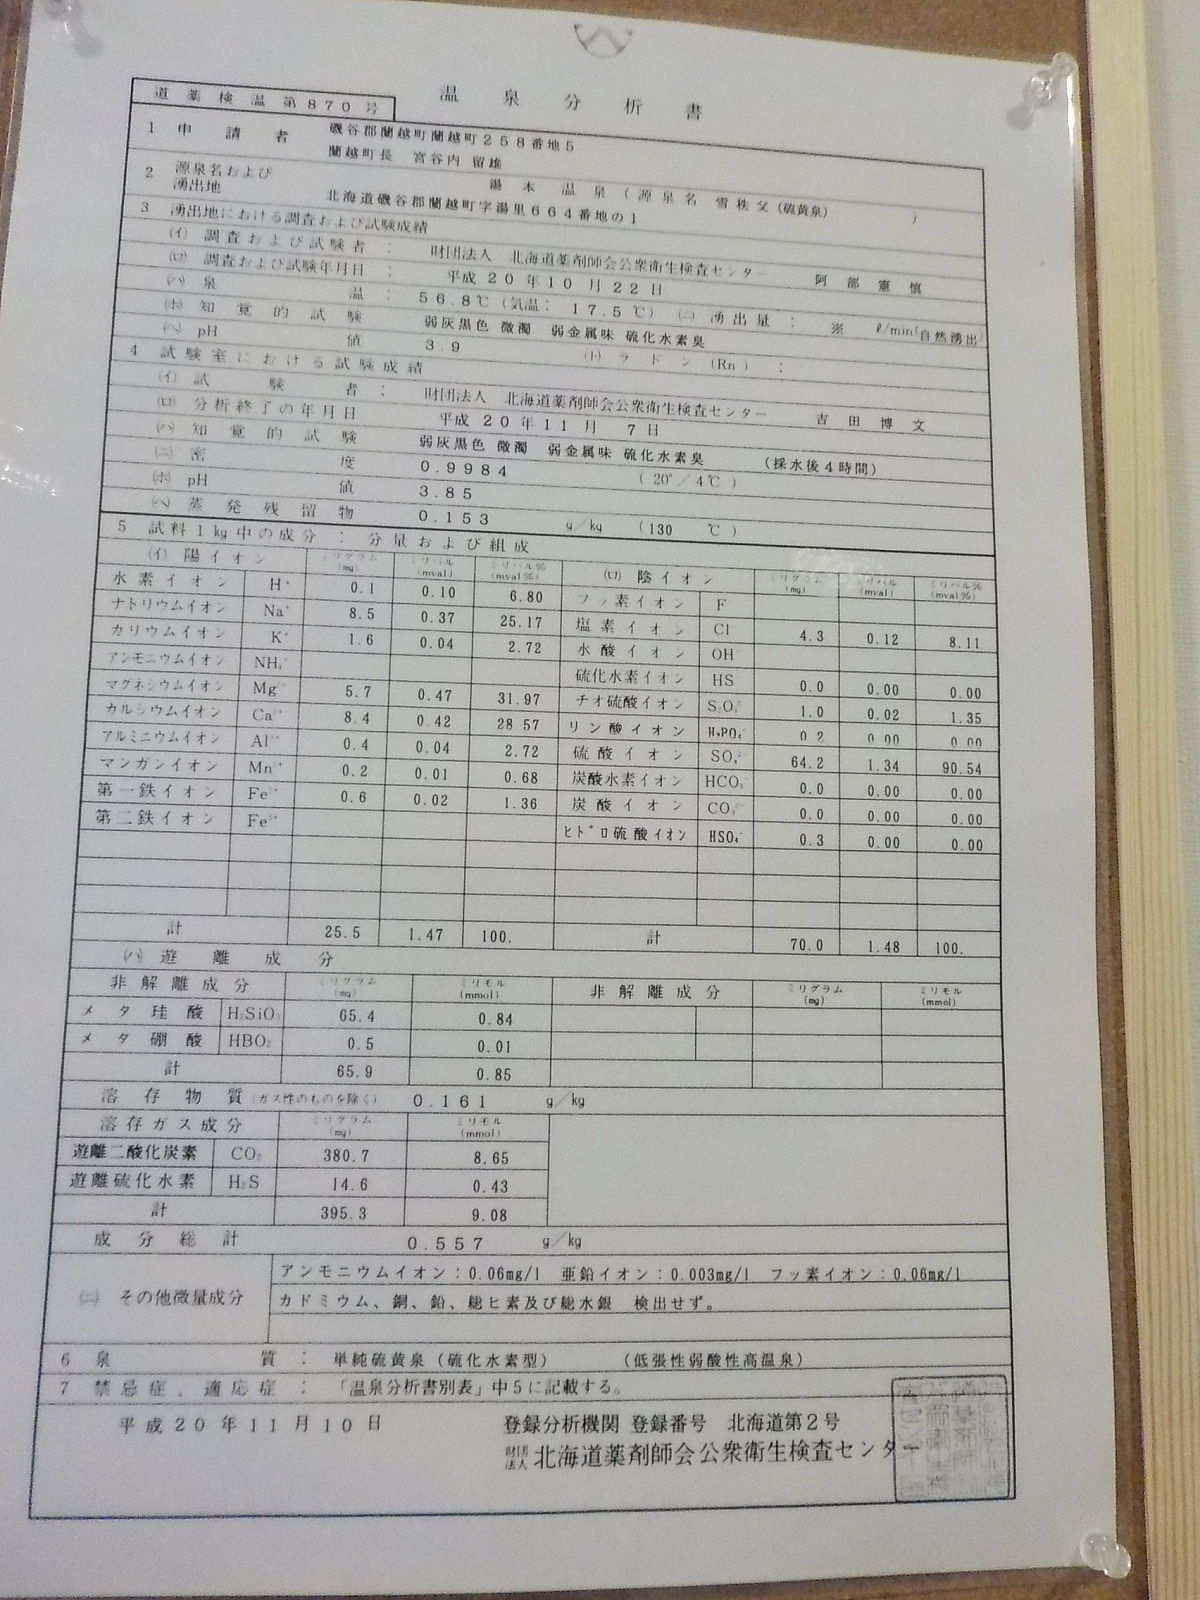 温泉分析書
道薬検温第870号
1 申請者 磯谷郡蘭越町蘭越町258番地5
蘭越町長 宮谷内 留雄
2 源泉名および湧出地 湯本温泉(源泉名 雪秩父(硫黄泉) )
北海道磯谷郡蘭越町字湯里664番地の1
3 湧出地における調査および試験成績
(イ) 調査および試験者: 財団法人 北海道薬剤師会公衆衛生検査センター 阿部憲慎
(ロ) 調査および試験年月日: 平成20年10月22日
(ハ) 泉温: 56.8℃(気温: 17.5℃) (ニ) 湧出量: ※ ℓ/min(自然湧出)
(ホ) 知覚的試験 弱灰黒色 微濁 弱金属味 硫化水素臭
(ヘ) pH値 3.9 (ト) ラドン(Rn):
4 試験室における試験成績
(イ) 試験者: 財団法人 北海道薬剤師会公衆衛生検査センター 吉田博文
(ロ) 分析終了の年月日 平成20年11月7日
(ハ) 知覚的試験 弱灰黒色 微濁 弱金属味 硫化水素臭 (採水後4時間)
(ニ) 密度 0.9984 (20°/4℃)
(ホ) pH値 3.85
(ヘ) 蒸発残留物 0.153 g/kg (130 ℃)
5 試料1kg中の成分:分量および組成
(イ) 陽イオン ミリグラム(mg) ミリバル(mval) ミリバル%(mval%) (ロ) 陰イオン ミリグラム(mg) ミリバル(mval) ミリバル%(mval%)
水素イオン H+ 0.1 0.10 6.80 フッ素イオン F
ナトリウムイオン Na+ 8.5 0.37 25.17 塩素イオン Cl 4.3 0.12 8.11
カリウムイオン K+ 1.6 0.04 2.72 水酸イオン OH
アンモニウムイオン NH4+ 硫化水素イオン HS 0.0 0.00 0.00
マグネシウムイオン Mg 5.7 0.47 31.97 チオ硫酸イオン S2O3 1.0 0.02 1.35
カルシウムイオン Ca2+ 8.4 0.42 28.57 リン酸イオン H2PO4- 0.2 0.00 0.00
アルミニウムイオン Al3+ 0.4 0.04 2.72 硫酸イオン SO4 64.2 1.34 90.54
マンガンイオン Mn2+ 0.2 0.01 0.68 炭酸水素イオン HCO3 0.0 0.00 0.00
第一鉄イオン Fe2+ 0.6 0.02 1.36 炭酸イオン CO3 0.0 0.00 0.00
第二鉄イオン Fe3+ ヒドロ硫酸イオン HSO4- 0.3 0.00 0.00
計 25.5 1.47 100. 計 70.0 1.48 100.
(ハ) 遊離成分
非解離成分 ミリグラム(mg) ミリモル(mmol) 非解離成分 ミリグラム(mg) ミリモル(mmol)
メタ珪酸 H2SiO3 65.4 0.84
メタ硼酸 HBO2 0.5 0.01
計 65.9 0.85
溶存物質(ガス性のものを除く) 0.161 g/kg
溶存ガス成分 ミリグラム(mg) ミリモル(mmol)
遊離二酸化炭素 CO2 380.7 8.65
遊離硫化水素 H2S 14.6 0.43
計 395.3 9.08
成分総計 0.557 g/kg
(ニ) その他微量成分 アンモニウムイオン:0.06mg/l 亜鉛イオン:0.003mg/l フッ素イオン:0.06mg/l
カドミウム、銅、鉛、総ヒ素及び総水銀 検出せず。
6 泉質: 単純硫黄泉(硫化水素型) (低張性弱酸性高温泉)
7 禁忌症、適応症: 「温泉分析書別表」中5に記載する。
平成20年11月10日 登録分析機関 登録番号 北海道第2号
財団法人 北海道薬剤師会公衆衛生検査センター